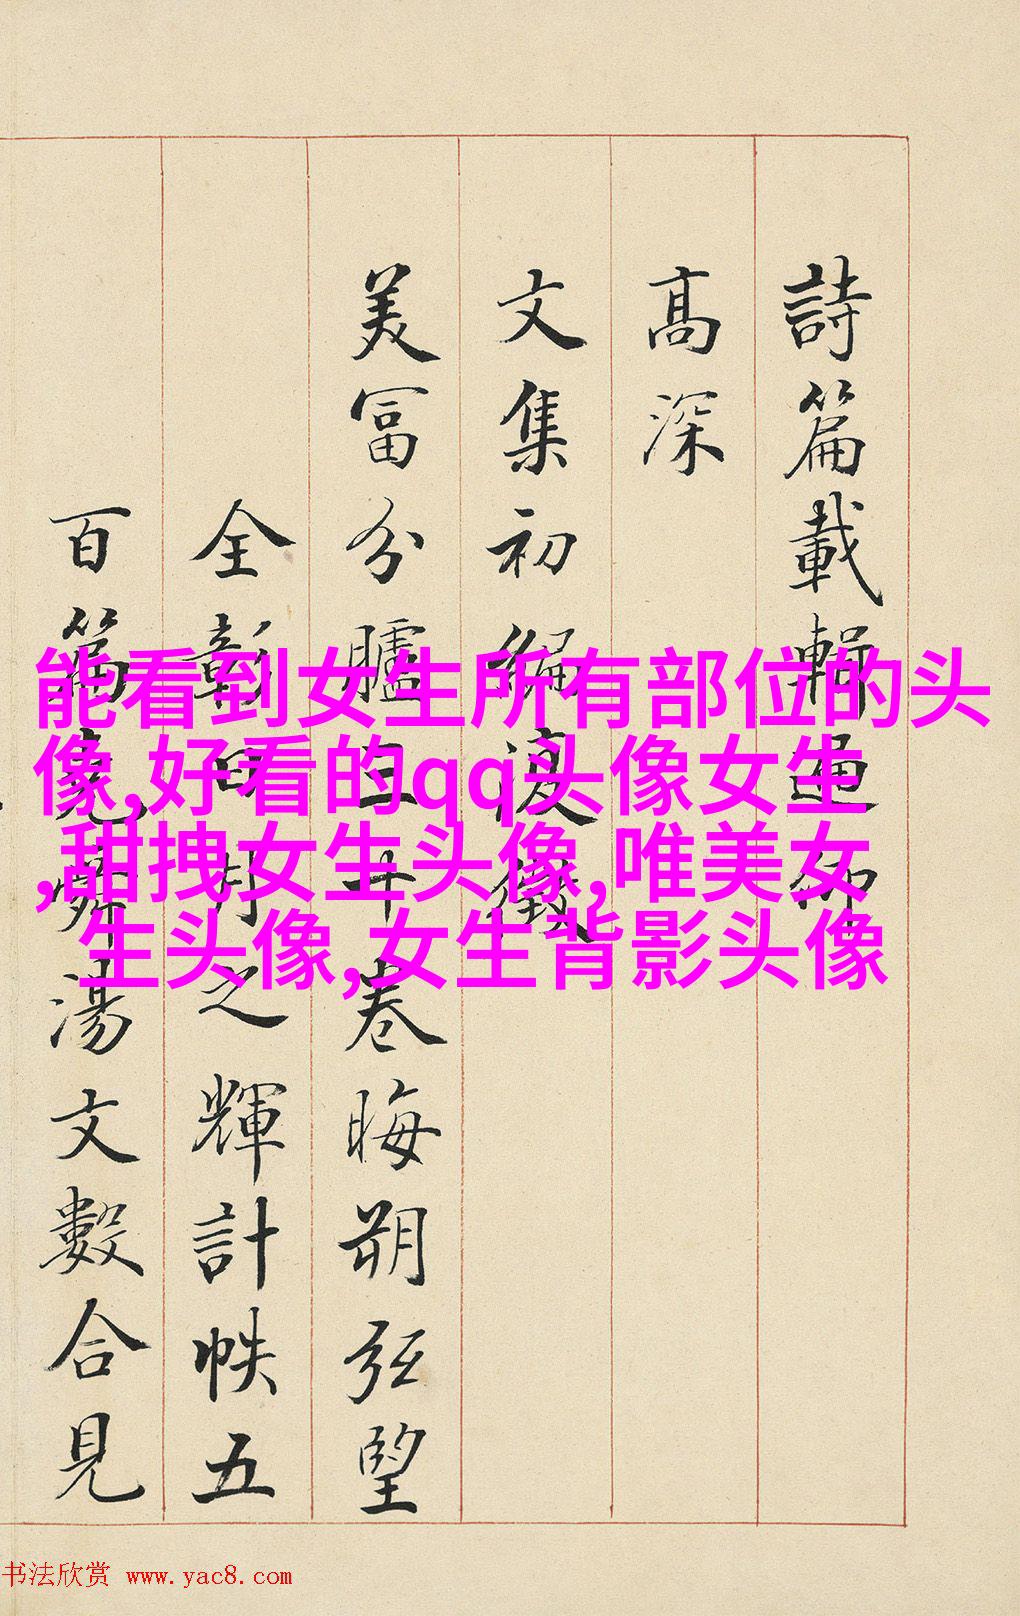 詩篇載輯仰
髙深
文集初編復徵
美冨分臚三十卷晦朔弦望
全彰日月之輝計帙五
百篇堯舜湯文數合見
能看到女生所有部位的头
像,好看的qq头像女生
,甜拽女生头像,唯美女
生头像,女生背影头像
书法欣赏 www.yac8.com